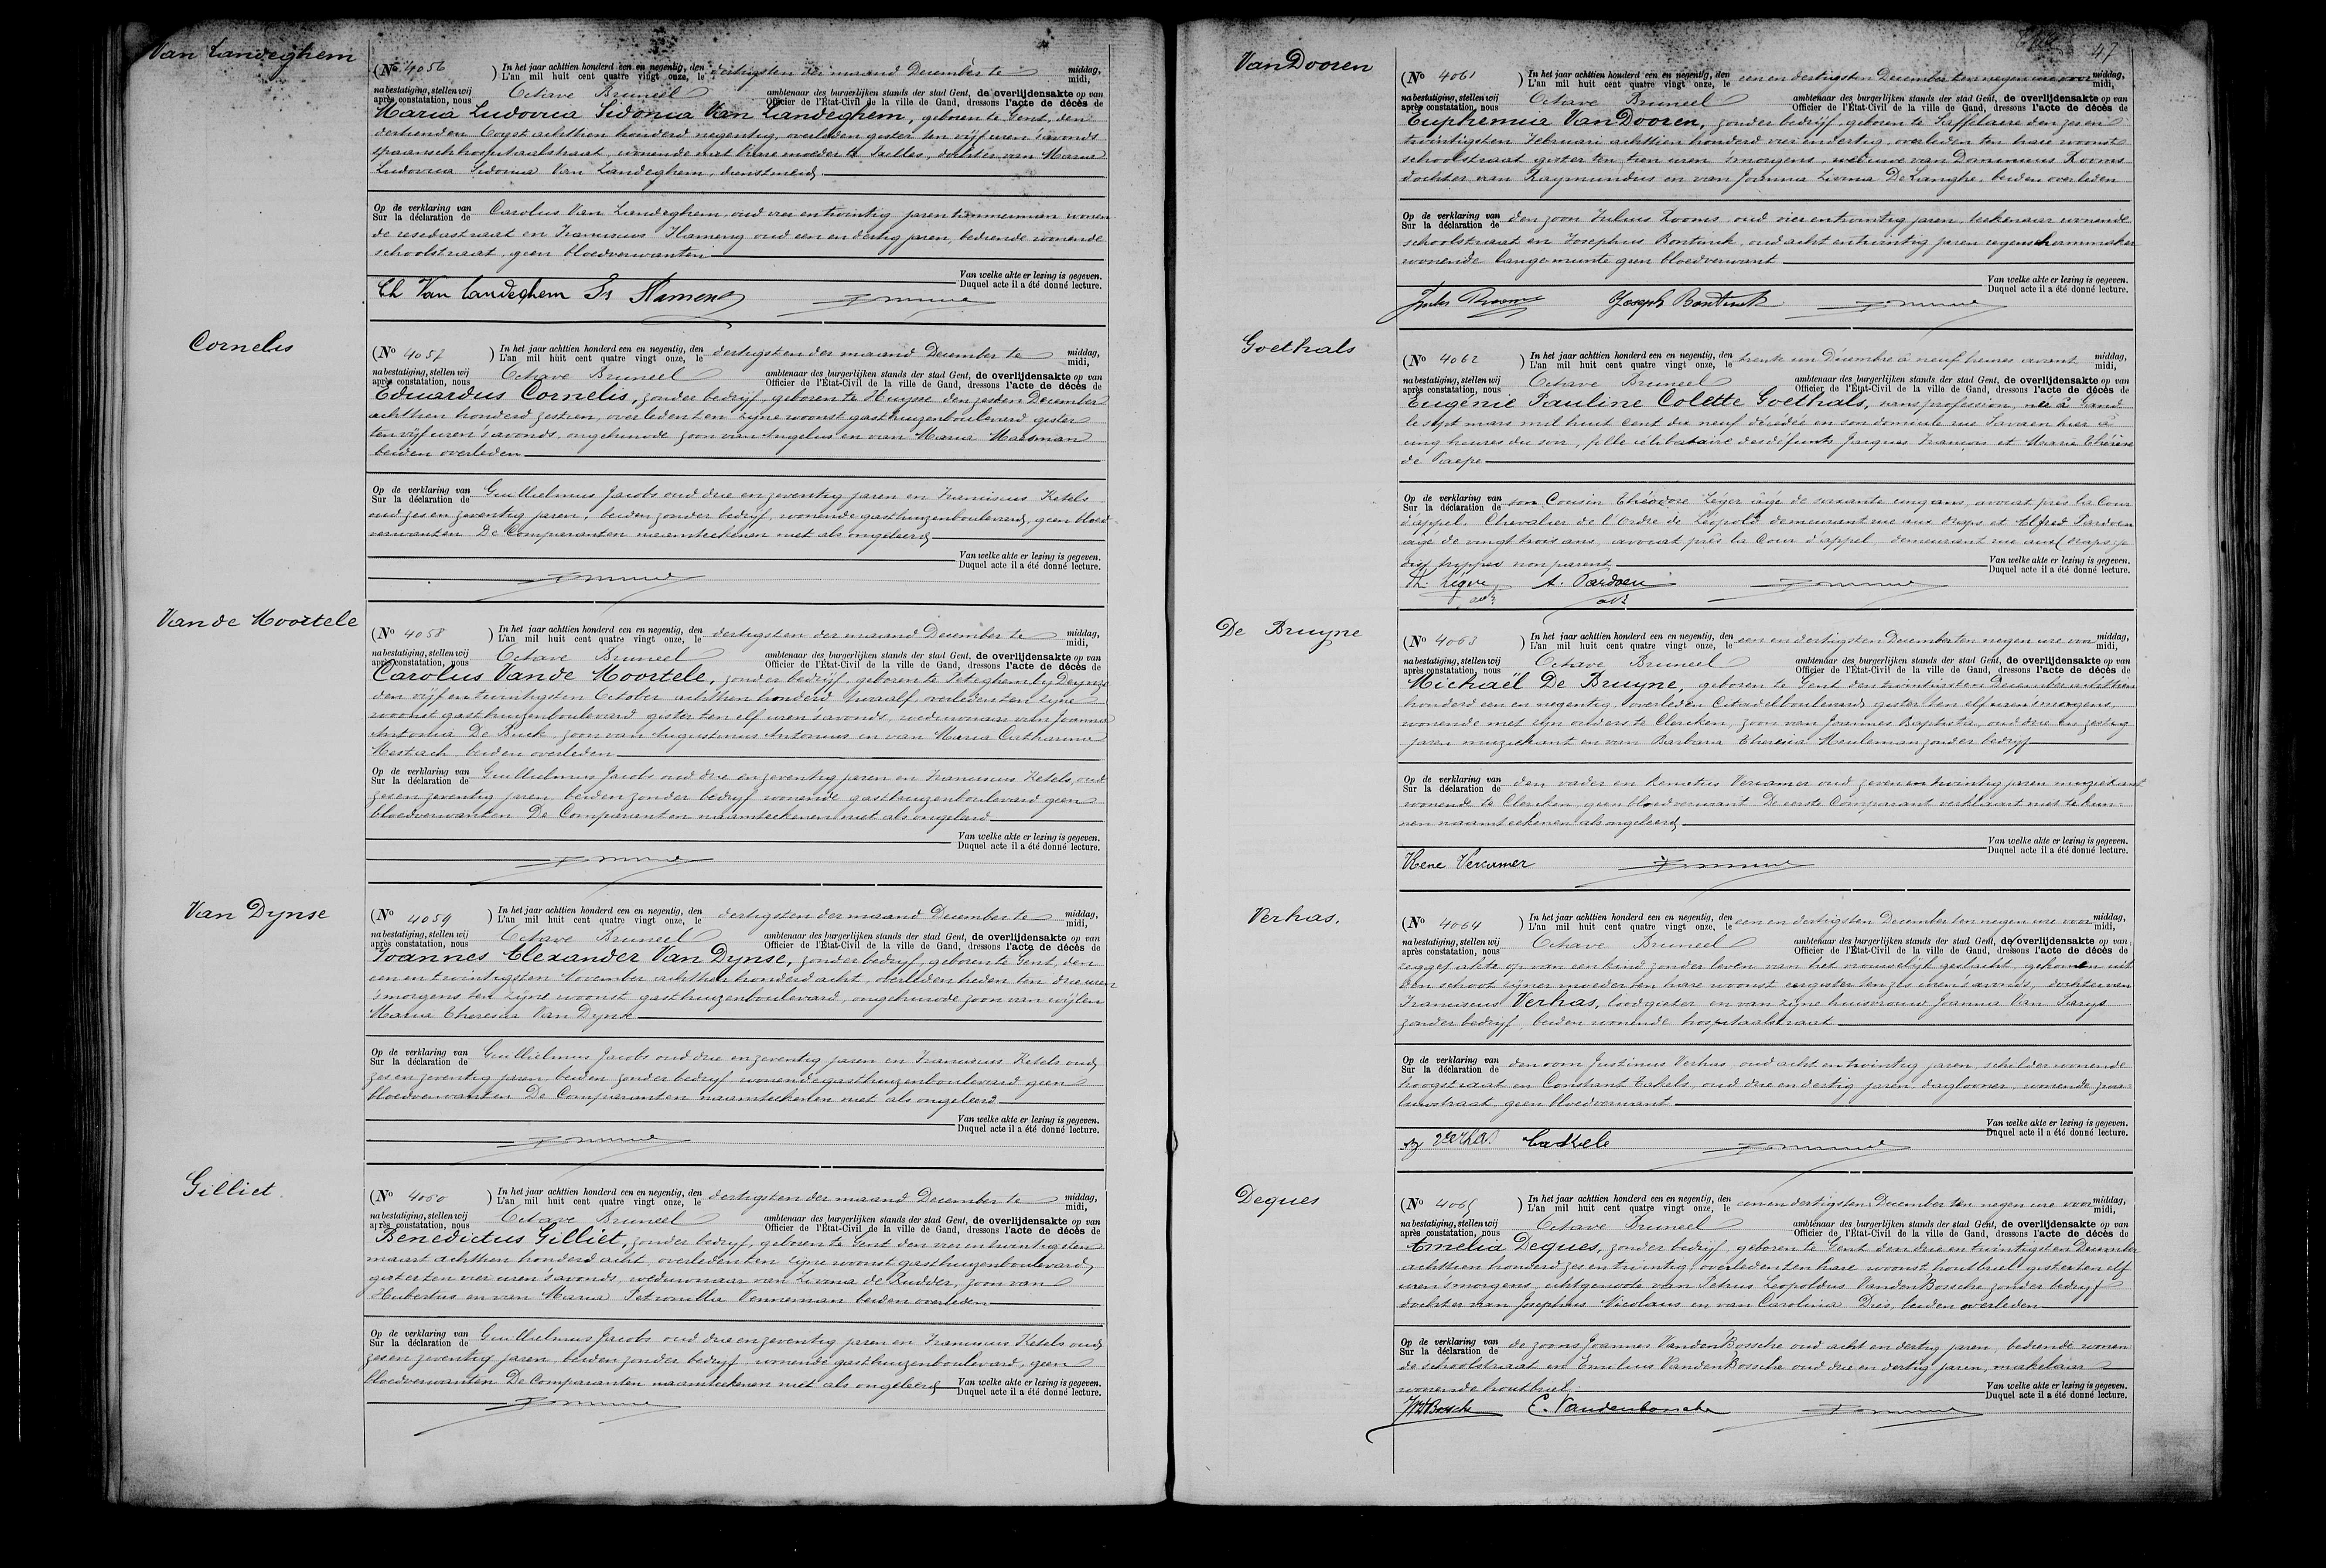 Van Landeghem
(No 4056) In het jaar achttien honderd een en negentig, den dertigsten der maand December te middag,
L'an mil huit cent quatre vingt onze, le midi,
na bestatiging, stellen wij Octave Bruneel ambtenaar des burgerlijken stands der stad Gent, de overlijdensakte op van
après constatation, nous Officier de l'État-Civil de la ville de Gand, dressons l'acte de décès de
Maria Ludovica Sidonia Van Landeghem, geboren te Gent, den
dertienden Oogst achttien honderd negentig, overleden gister ten vijf uren 's avonds
spaanschhospitaalstraat, wonende met hare moeder te Ixelles, dochter van Maria
Ludovica Sidonia Van Landeghem, dienstmeid
Op de verklaring van Carolus Van Landeghem oud vier en twintig jaren timmerman wonen
Sur la déclaration de
de resedastraat en Franciscus Flameng oud een en dertig jaren, bediende wonende
schoolstraat, geen bloedverwanten
Van welke akte er lezing is gegeven.
Duquel acte il a été donné lecture.
Ch Van Landeghem Fs Flameng
Cornelis
(No 4057) In het jaar achttien honderd een en negentig, den dertigsten der maand December te middag,
L'an mil huit cent quatre vingt onze, le midi,
na bestatiging, stellen wij Octave Bruneel ambtenaar des burgerlijken stands der stad Gent, de overlijdensakte op van
après constatation, nous Officier de l'État-Civil de la ville de Gand, dressons l'acte de décès de
Eduardus Cornelis, zonder bedrijf, geboren te Huysse den zesden December
achttien honderd zestien, overleden ten zijne woonst gasthuizenboulevard gister
ten vijf uren 's avonds, ongehuwde zoon van Angelus en van Maria Maesman
beiden overleden
Op de verklaring van Guillielmus Jacobs oud drie en zeventig jaren en Franciscus Ketels
Sur la déclaration de
oud zes en zeventig jaren, beiden zonder bedrijf, wonende gasthuizenboulevard, geen bloed
verwanten De Comparanten naamteekenen niet als ongeleerd
Van welke akte er lezing is gegeven.
Duquel acte il a été donné lecture.
Van de Moortele
(No 4058) In het jaar achttien honderd een en negentig, den dertigsten der maand December te middag,
L'an mil huit cent quatre vingt onze, le midi,
na bestatiging, stellen wij Octave Bruneel ambtenaar des burgerlijken stands der stad Gent, de overlijdensakte op van
après constatation, nous Officier de l'État-Civil de la ville de Gand, dressons l'acte de décès de
Carolus Van de Moortele, zonder bedrijf, geboren te Peteghem bij Deynze
den vijf en twintigsten October achttien honderd twaalf, overleden ten zijne
woonst gasthuizenboulevard gister ten elf uren 's avonds, weduwnaar van Joanna
Antonia De Buck, zoon van Augustinus Antonius en van Maria Catharina
Mestach beiden overleden
Op de verklaring van Guillielmus Jacobs oud drie en zeventig jaren en Franciscus Ketels, oud
Sur la déclaration de
zes en zeventig jaren, beiden zonder bedrijf wonende gasthuizenboulevard geen
bloedverwanten De Comparanten naamteekenen niet als ongeleerd
Van welke akte er lezing is gegeven.
Duquel acte il a été donné lecture.
Van Dynse
(No 4059) In het jaar achttien honderd een en negentig, den dertigsten der maand December te middag,
L'an mil huit cent quatre vingt onze, le midi,
na bestatiging, stellen wij Octave Bruneel ambtenaar des burgerlijken stands der stad Gent, de overlijdensakte op van
après constatation, nous Officier de l'État-Civil de la ville de Gand, dressons l'acte de décès de
Joannes Alexander Van Dynse, zonder bedrijf, geboren te Gent, den
een en twintigsten November achttien honderd acht, overleden heden ten drie uren
's morgens ten zijne woonst gasthuizenboulevard, ongehuwde zoon van wijlen
Maria Theresia Van Dynse
Op de verklaring van Guillielmus Jacobs oud drie en zeventig jaren en Franciscus Ketels oud
Sur la déclaration de
zes en zeventig jaren beiden zonder bedrijf wonende gasthuizenboulevard geen
bloedverwanten De Comparanten naamteekenen niet als ongeleerd
Van welke akte er lezing is gegeven.
Duquel acte il a été donné lecture.
Gilliet.
(No 4060) In het jaar achttien honderd een en negentig, den dertigsten der maand December te middag,
L'an mil huit cent quatre vingt onze, le midi,
na bestatiging, stellen wij Octave Bruneel ambtenaar des burgerlijken stands der stad Gent, de overlijdensakte op van
après constatation, nous Officier de l'État-Civil de la ville de Gand, dressons l'acte de décès de
Benedictus Gilliet, zonder bedrijf, geboren te Gent den vier en twintigsten
maart achttien honderd acht, overleden ten zijne woonst gasthuizenboulevard,
gister ten vier uren 's avonds, weduwnaar van Livina de Rudder, zoon van
Hubertus en van Maria Petronilla Venneman beiden overleden
Op de verklaring van Guillielmus Jacobs oud drie en zeventig jaren en Franciscus Ketels oud
Sur la déclaration de
zes en zeventig jaren, beiden zonder bedrijf, wonende gasthuizenboulevard, geen
bloedverwanten De Comparanten naamteekenen niet als ongeleerd Van welke akte er lezing is gegeven.
Duquel acte il a été donné lecture.
47
Van Dooren
(No 4061) In het jaar achttien honderd een en negentig, den een en dertigsten December ten negen ure voor middag,
L'an mil huit cent quatre vingt onze, le midi,
na bestatiging, stellen wij Octave Bruneel ambtenaar des burgerlijken stands der stad Gent, de overlijdensakte op van
après constatation, nous Officier de l'État-Civil de la ville de Gand, dressons l'acte de décès de
Euphemia Van Dooren, zonder bedrijf, geboren te Saffelaere den zes en
twintigsten Februari achttien honderd vier en dertig, overleden ten hare woonst
schoolstraat gister ten tien uren 's morgens, weduwe van Dominicus Rooms
dochter van Raymundus en van Joanna Livina De Langhe, beiden overleden
Op de verklaring van den zoon Julius Rooms oud vier en twintig jaren, teekenaar wonende
Sur la déclaration de
schoolstraat en Josephus Bontinck, oud acht en twintig jaren regenschermmaker
wonende lange munte geen bloedverwant
Van welke akte er lezing is gegeven.
Duquel acte il a été donné lecture.
Jules Rooms Joseph Bontinck
Goethals
(No 4062) In het jaar achttien honderd een en negentig, den trente un Décembre à neuf heures avant middag,
L'an mil huit cent quatre vingt onze, le midi,
na bestatiging, stellen wij Octave Bruneel ambtenaar des burgerlijken stands der stad Gent, de overlijdensakte op van
après constatation, nous Officier de l'État-Civil de la ville de Gand, dressons l'acte de décès de
Eugénie Pauline Colette Goethals, sans profession, née à Gand
le sept mars mil huit cent dix neuf décédée en son domicile rue Savaen hier à
cinq heures du soir, fille célibataire des défunts Jacques François et Marie Thérèse
de Paepe
Op de verklaring van son Cousin Théodore Léger âgé de soixante cinq ans, avocat près la Cour
Sur la déclaration de
d'appel, Chevalier de l'Ordre de Léopold demeurant rue aux draps et Alfred Pardoen
âgé de vingt trois ans, avocat près la Cour d'appel demeurant rue aux (draps
non parent Van welke akte er lezing is gegeven.
Duquel acte il a été donné lecture.
Th. Léger A. Pardoen
De Bruyne
(No 4063) In het jaar achttien honderd een en negentig, den een en dertigsten December ten negen ure voor middag,
L'an mil huit cent quatre vingt onze, le midi,
na bestatiging, stellen wij Octave Bruneel ambtenaar des burgerlijken stands der stad Gent, de overlijdensakte op van
après constatation, nous Officier de l'État-Civil de la ville de Gand, dressons l'acte de décès de
Michaël De Bruyne, geboren te Gent den twintigsten December achttien
honderd een en negentig, overleden Citadelboulevard gister ten elf uren 's morgens,
wonende met zijn ouders te Clercken, zoon van Joannes Baptista, oud drie en zestig
jaren muziekant en van Barbara Theresia Meuleman zonder bedrijf
Op de verklaring van den vader en Renatus Vercamer oud zeven en twintig jaren muziekant
Sur la déclaration de
wonende te Clercken, geen bloedverwant De eerste Comparant verklaart niet te kun-
nen naamteekenen als ongeleerd
Van welke akte er lezing is gegeven.
Duquel acte il a été donné lecture.
Rene Vercamer
Verhas.
(No 4064) In het jaar achttien honderd een en negentig, den een en dertigsten December ten negen ure voor middag,
L'an mil huit cent quatre vingt onze, le midi,
na bestatiging, stellen wij Octave Bruneel ambtenaar des burgerlijken stands der stad Gent, de overlijdensakte op van
après constatation, nous Officier de l'État-Civil de la ville de Gand, dressons l'acte de décès de
akte op van een kind zonder leven van het vrouwelijk geslacht, gekomen uit
den schoot zijner moeder ten hare woonst eergister ten zes uren 's avonds, dochter van
Franciscus Verhas, loodgieter en van zijne huisvrouw Joanna Van Parys
zonder bedrijf, beiden wonende hospitaalstraat
Op de verklaring van den oom Justinus Verhas, oud acht en twintig jaren, schilder wonende
Sur la déclaration de
hoogstraat en Constant Cakels, oud drie en dertig jaren, daglooner, wonende
straat, geen bloedverwant
Van welke akte er lezing is gegeven.
Duquel acte il a été donné lecture.
Verhas
Deques
(No 4065) In het jaar achttien honderd een en negentig, den een en dertigsten December ten negen ure voor middag,
L'an mil huit cent quatre vingt onze, le midi,
na bestatiging, stellen wij Octave Bruneel ambtenaar des burgerlijken stands der stad Gent, de overlijdensakte op van
après constatation, nous Officier de l'État-Civil de la ville de Gand, dressons l'acte de décès de
Amelia Deques, zonder bedrijf, geboren te Gent den drie en twintigsten December
achttien honderd zes en twintig, overleden ten hare woonst houtbriel gister ten elf
uren 's morgens, echtgenoote van Petrus Leopoldus Vanden Bossche, zonder bedrijf
dochter van Josephus Nicolaus en van Carolina Dries, beiden overleden
Op de verklaring van de zoons Joannes Vanden Bossche oud acht en dertig jaren, bediende wonen
Sur la déclaration de
de schoolstraat en Emelius Vanden Bossche oud drie en dertig jaren, makelaar
wonende houtbriel. Van welke akte er lezing is gegeven.
Duquel acte il a été donné lecture.
JVDBossche E. Vandenbossche